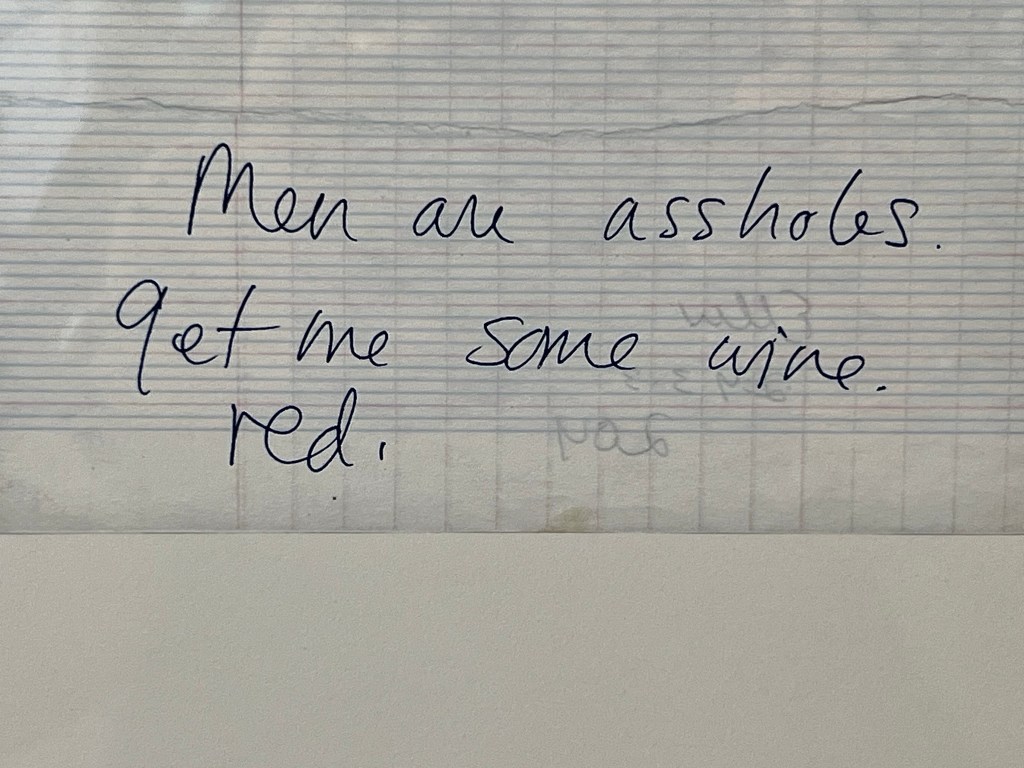 Men are assholes.
get me some wine.
red.